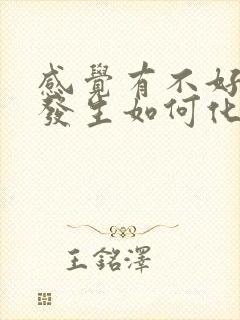 感覺有不好
發生如何化
王銘澤